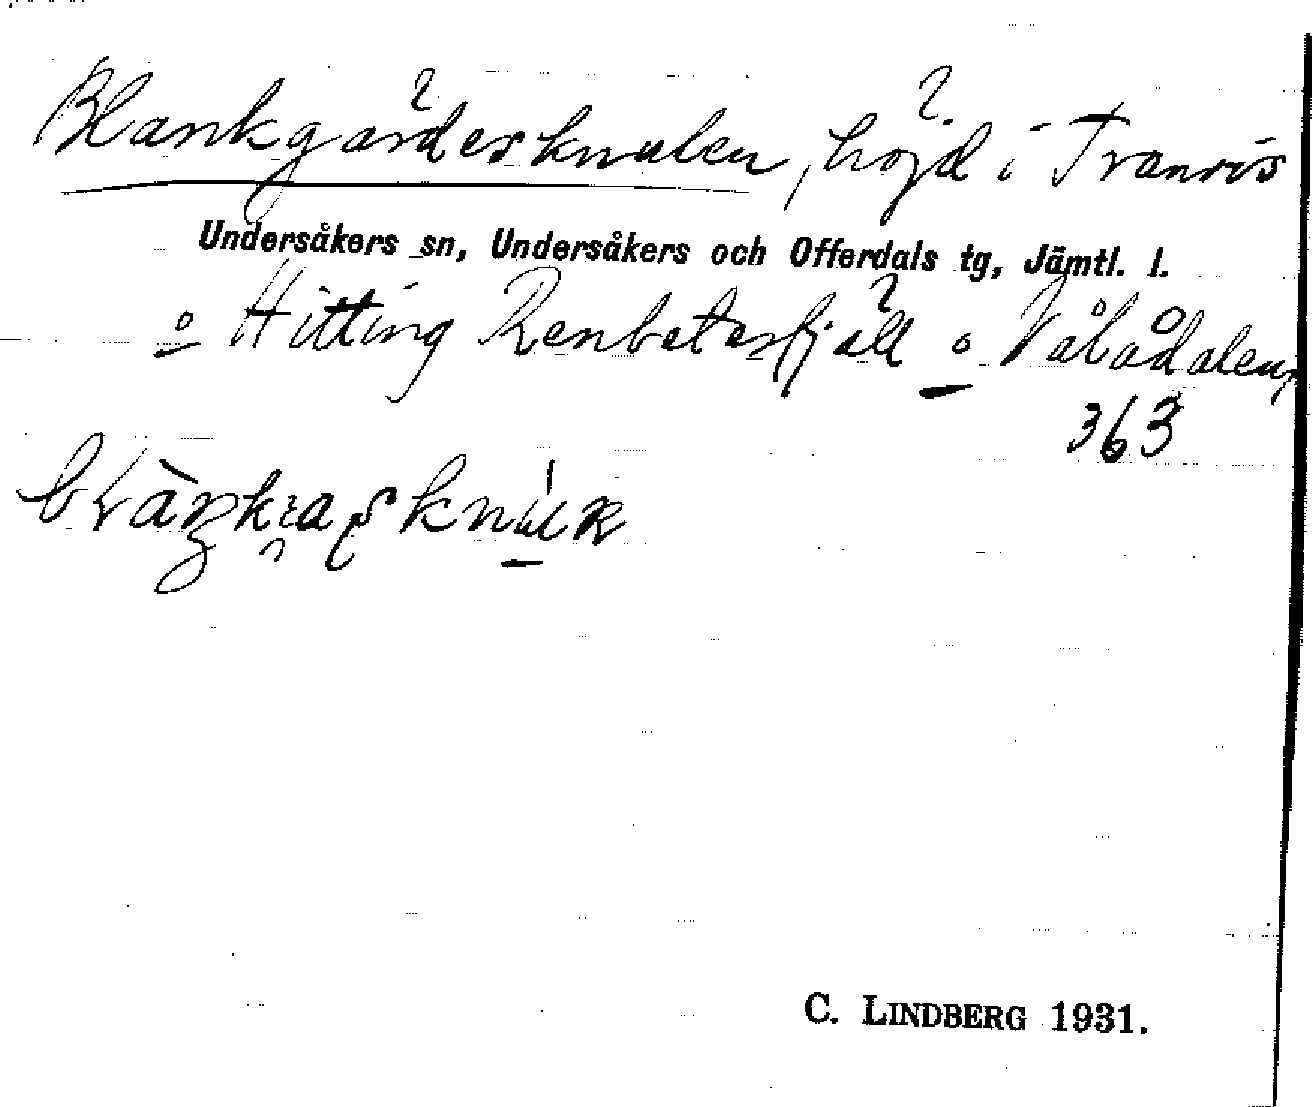 Blankgärdesknulen, höjd i Tranris
Undersåkers sn, Undersåkers och Offerdals tg, Jämtl. l.
o Hitting Renbetesfjäll o Vålådalen,
363
C. LINDBERG 1931.